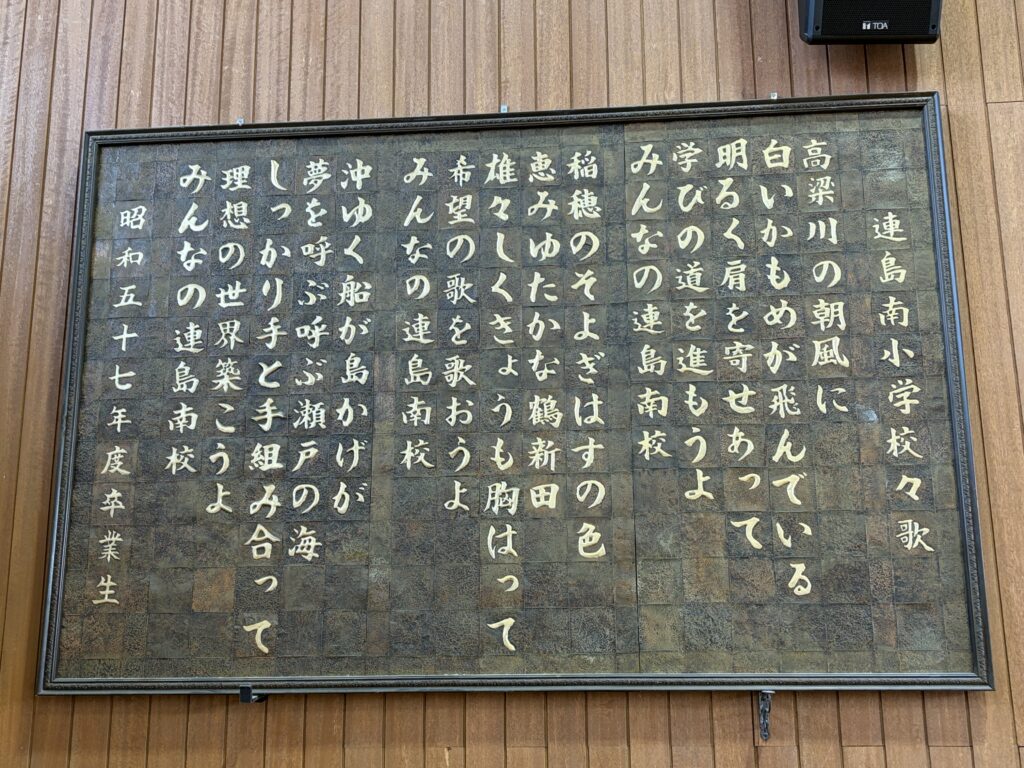 連島南小学校々歌
高梁川の朝風に
白いかもめが飛んでいる
明るく肩を寄せあって
学びの道を進もうよ
みんなの連島南校
稲穂のそよぎはすの色
恵みゆたかな鶴新田
雄々しくきょうも胸はって
希望の歌を歌おうよ
みんなの連島南校
沖ゆく船が島かげが
夢を呼ぶ呼ぶ瀬戸の海
しっかり手と手組み合って
理想の世界築こうよ
みんなの連島南校
昭和五十七年度卒業生
TOA